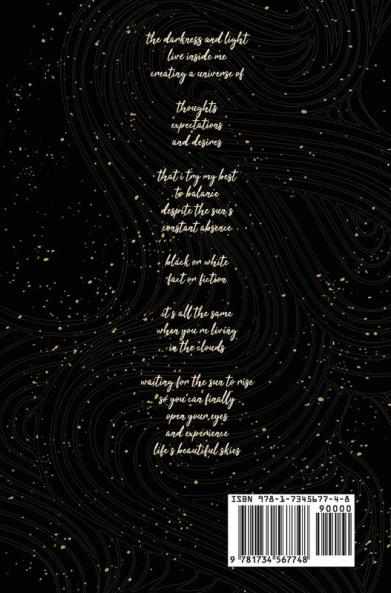 the darkness and light
live inside me
creating a universe of
thoughts
expectations
and desires
that i try my best
to balance
despite the sun's
constant absence
black or white
fact or fiction
it's all the same
when you're living
in the clouds
waiting for the sun to rise
so you can finally
open your eyes
and experience
life's beautiful skies
ISBN 978-1-7345677-4-8
90000
9 781734 567748